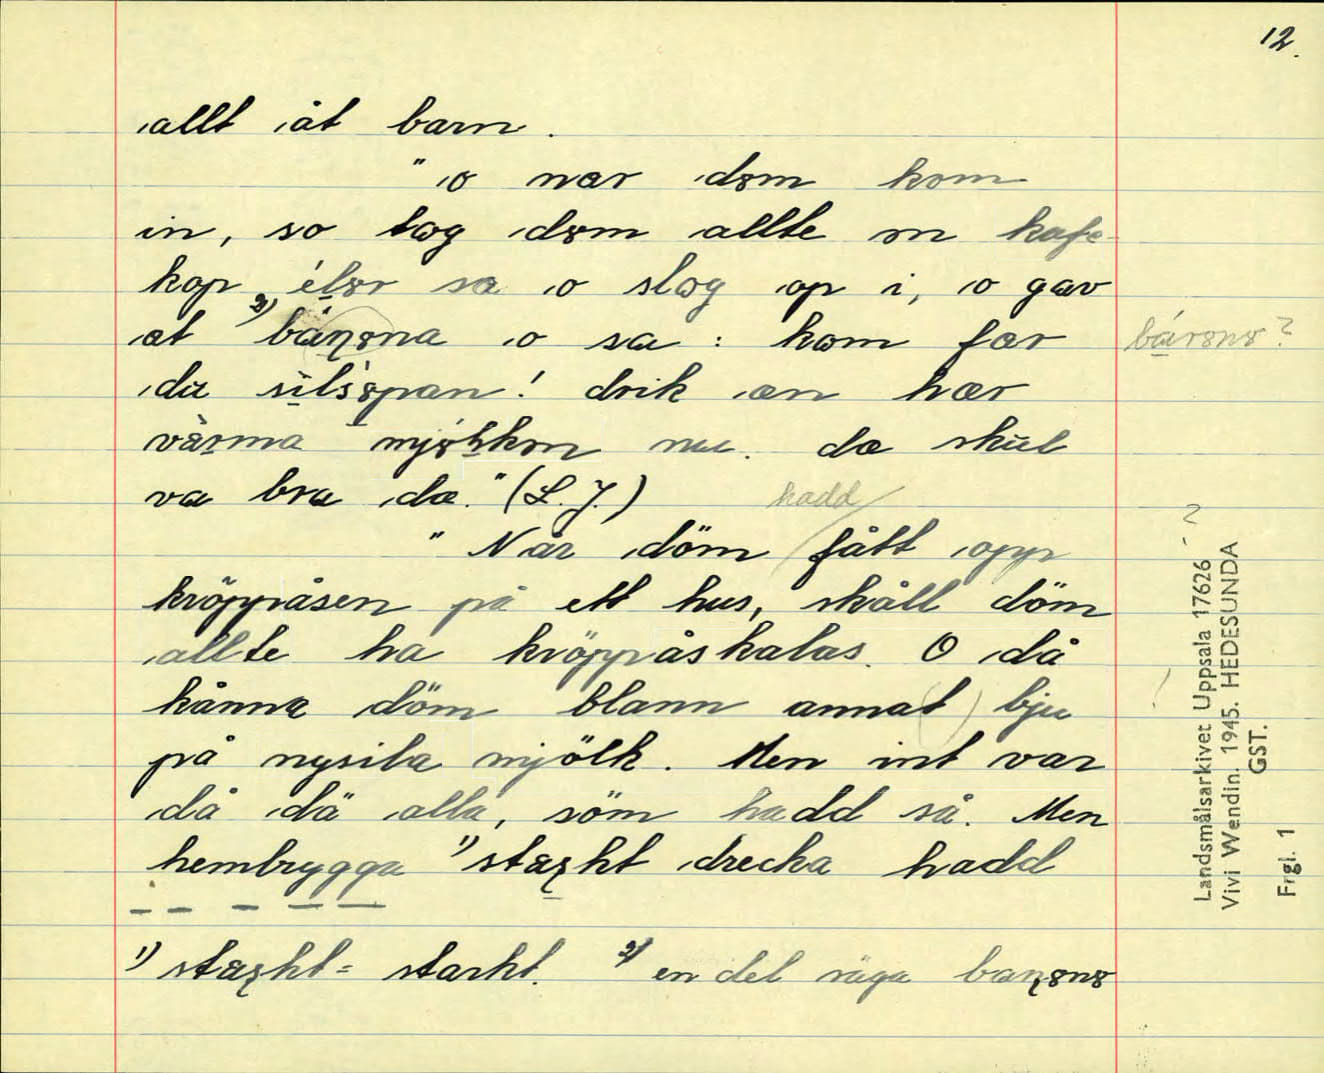 12.
allt åt barn.
"o nær dɵm kom
in, so tog dɵm allte en kafe-
kop élɵr sɑ o slog op i, o gav
at ²⁾ bán̥ɵna o sa: kom fær
du sìlsɵpan! drik æn hær
værma mjɵlken nu. dæ skul
va bra dæ." (L. J.)
hadd
" När döm fått opp
kröppåsen på ett hus, skåll döm
allte ha kröppåskalas. O då
kånna döm blann anna(t) bju
på nysila mjölk. Men int var
då dä alla, söm hadd så. Men
hembrygga ¹⁾ stæʂkt drecka hadd
¹⁾ stæʂkt = starkt. ²⁾ en del säga
bárɵnɵ?
Landsmålsarkivet Uppsala 17626
Vivi Wendin. 1945. HEDESUNDA
GST.
Frgl. 1